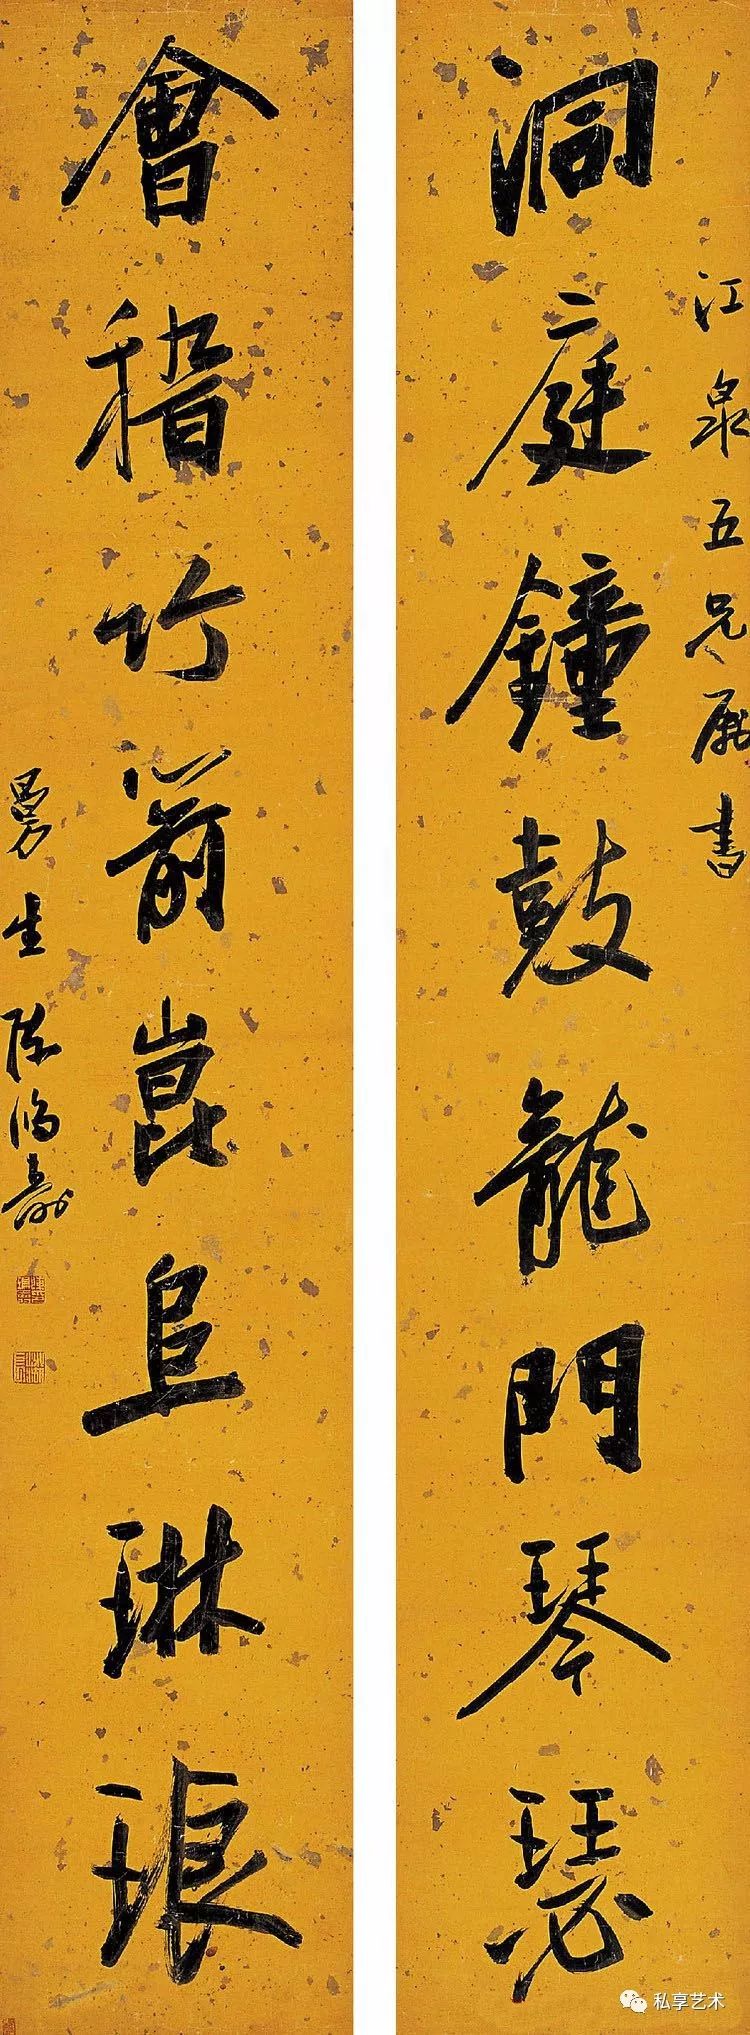 江泉五兄屬書
洞庭鐘鼓龍門琴瑟
會稽竹箭崑阜琳琅
曼生陳鴻壽
私享艺术